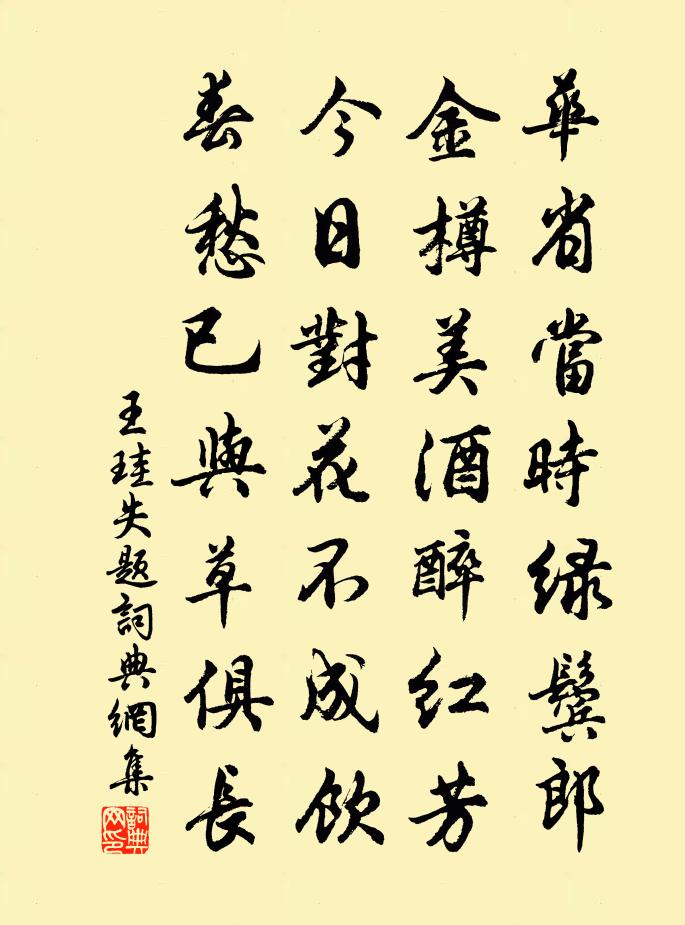 華省當時緑鬢郎
金樽美酒醉紅芳
今日對花不成飲
春愁已與草俱長
王珪失題詞典網集
詞典網印